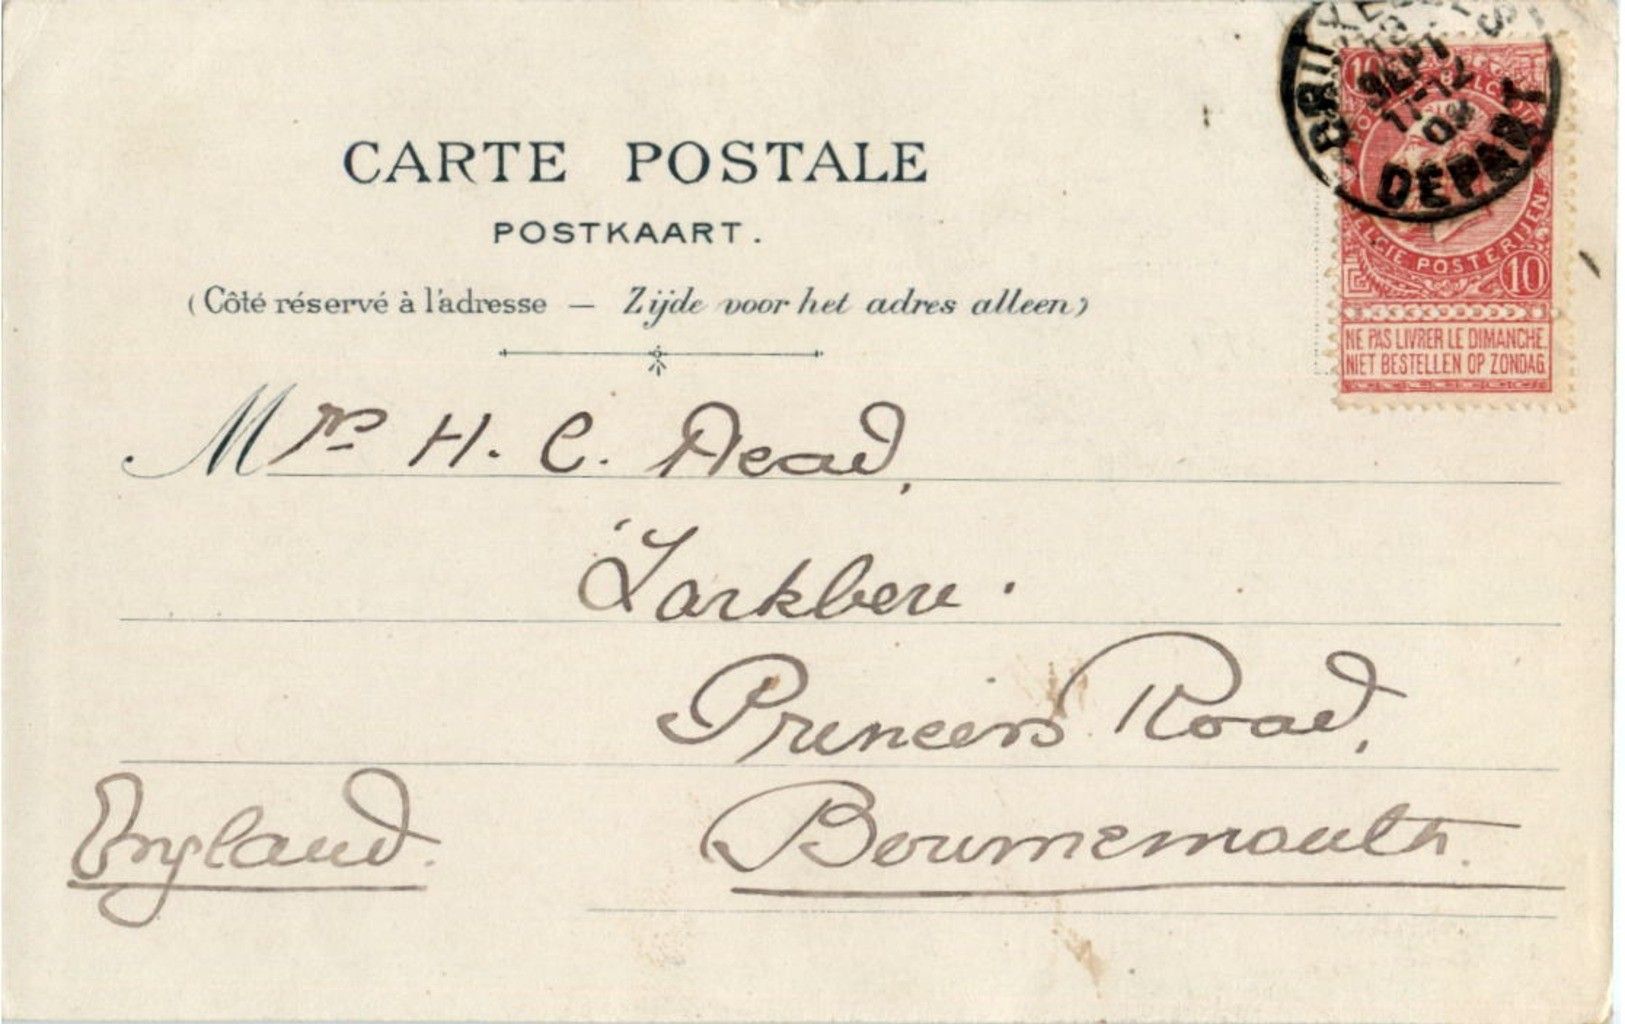 CARTE POSTALE
POSTKAART.
(Côté réservé à l'adresse — Zijde voor het adres alleen)
BRUXELLES
SEPT
11-12
DEPART
10
POSTERIJEN
10
NE PAS LIVRER LE DIMANCHE.
NIET BESTELLEN OP ZONDAG
Mrs H. C. Dead,
Larkbere.
Princess Road,
Bournemouth.
England.